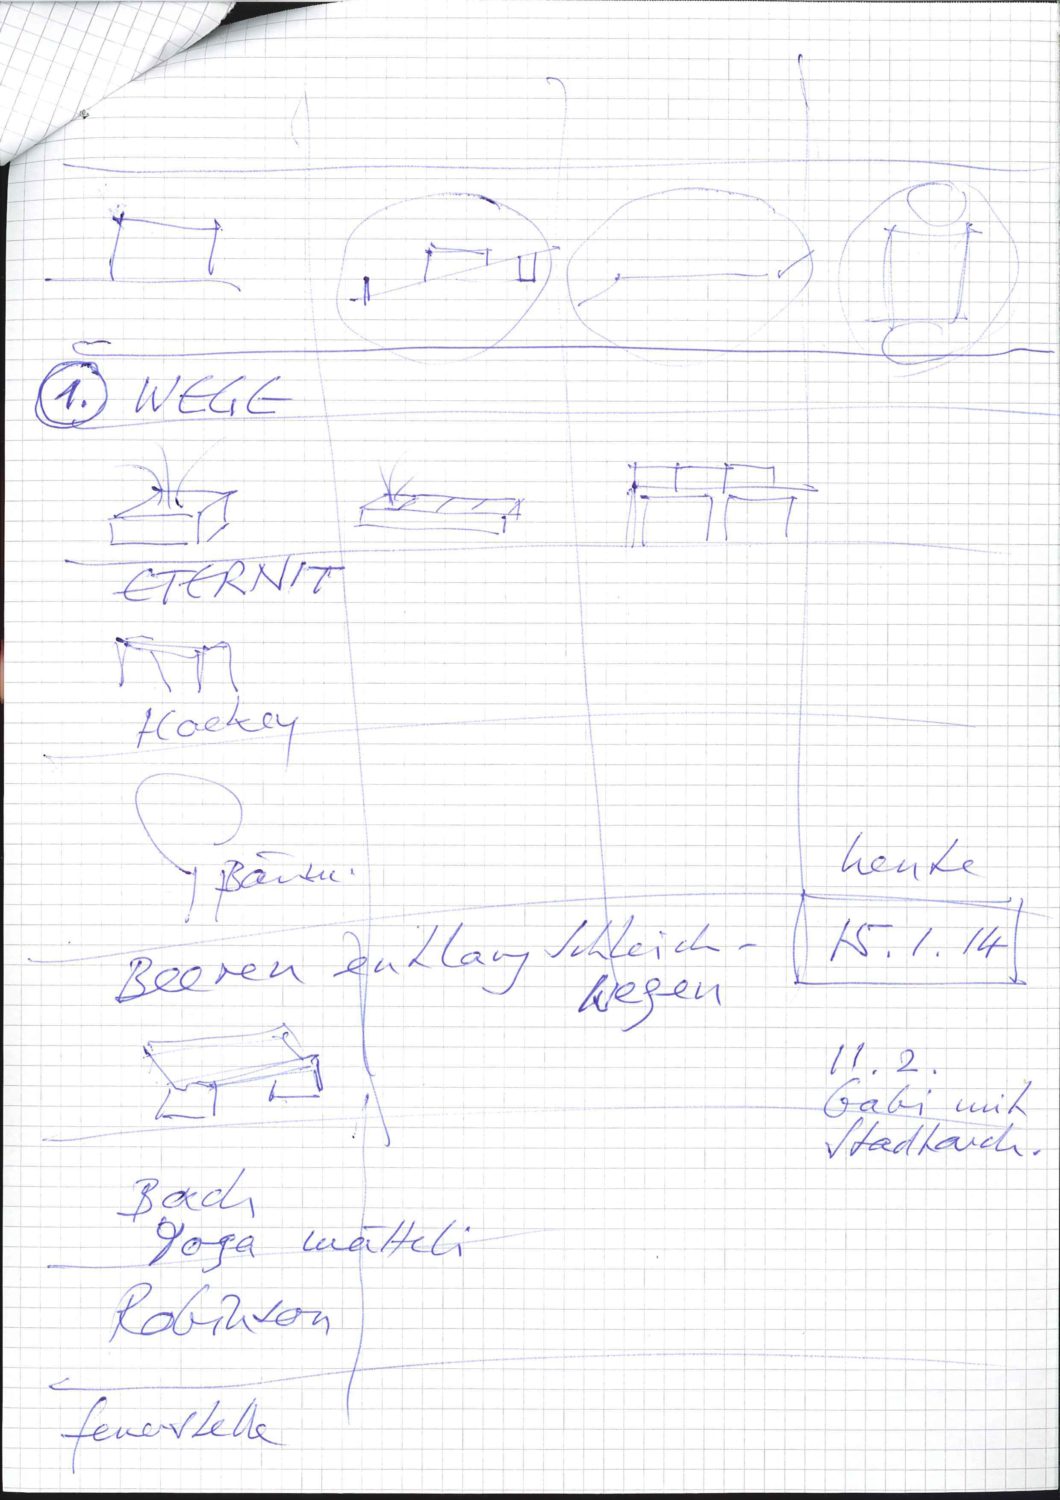 1. WEGE
ETERNIT
Hockey
heute
15.1.14
Beeren entlang Schleich-
wegen
11.2.
Gabi mit
Stadtarch.
Bach
Yoga mätteli
Robinson
feuerstelle